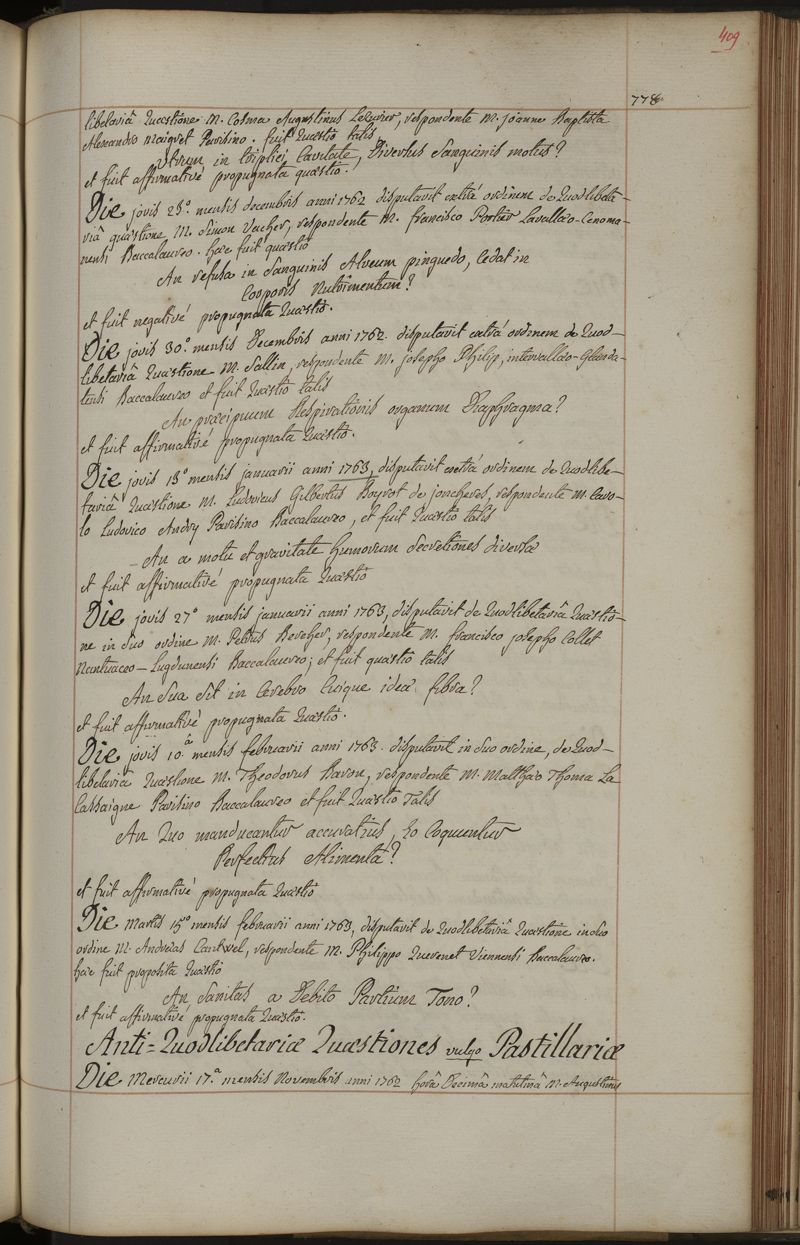 409
778.
libetariâ Quæstione M. Cosma Augustinus Lezurier, respondente M. Joanne Baptista
Alexandro Maigret Parisino. fuit Quæstio talis
Utrum in triplici Cavitate, Diversus Sanguinis motus?
et fuit affirmativé propugnata quæstio.
Die jovis 23.º mensis decembris anni 1762 disputavit extrá ordinem de Quodlibeta-
riâ quæstione M. Simon Vacher, respondente M. francisco Portier Lavallæo-Cenoma-
nensi Baccalaureo. hæc fuit quæstio
An refusa in Sanguinis Alveum pinguedo, Cedat in
Corporis Nutrimentum?
et fuit negativé propugnata Quæstio.
Die jovis 30.º mensis Decembris anni 1762. disputavit extrá ordinem de Quod-
libetariâ Quæstione M. Sallin, respondente M. josepho Philip, intervallæo-Glanda-
tensi Baccalaureo et fuit Quæstio talis
An præcipuum Respirationis organum Diaphragma?
et fuit affirmativé propugnata Quæstio.
Die jovis 13º mensis januarii anni 1763, disputavit extrá ordinem de Quodlibe-
tariâ Quæstione M. Ludovicus Gilbertus Boyrot de joncheres, respondente M. Caro-
lo Ludovico Andry Parisino Baccalaureo, et fuit Quæstio talis
- An a motu et gravitate humorum Secretiones diversæ
et fuit affirmativé propugnata Quæstio
Die jovis 27º mensis januarii anni 1763, disputavit de Quodlibetariâ Quæstio-
ne in suo ordine M. Petrus Bercher, respondente M. francisco josepho Collet
Nantuaceo-Lugdunensi Baccalaureo; et fuit quæstio talis
An Sua Sit in Cerebro Cuique ideæ fibra?
et fuit affirmativé propugnata Quæstio.
Die jovis 10.â mensis februarii anni 1763. disputavit in suo ordine, de Quod-
libetariâ Quæstione M. Theodorus Baron, respondente M. Matthæo Thoma La
Cassaigne Parisino Baccalaureo et fuit Quæstio Talis
An Quo manducantur accuratius, Eo Coquuntur
Perfectius Alimenta?
et fuit affirmativé propugnata Quæstio
Die Martis 15º mensis februarii anni 1763, disputavit de Quodlibetariâ Quæstione in suo
ordine M. Andreas Cantwel, respondente M. Philippo Quevenet Viennensi Baccalaureo.
hæc fuit proposita Quæstio
An Sanitas a Debito Partium Tono?
et fuit affirmativé propugnata Quæstio.
Anti=Quodlibetariæ Quæstiones vulgo Pastillariæ
Die Mercurii 17.â mensis Novembris anni 1762 horâ Decimâ matutinâ M. Augustinus